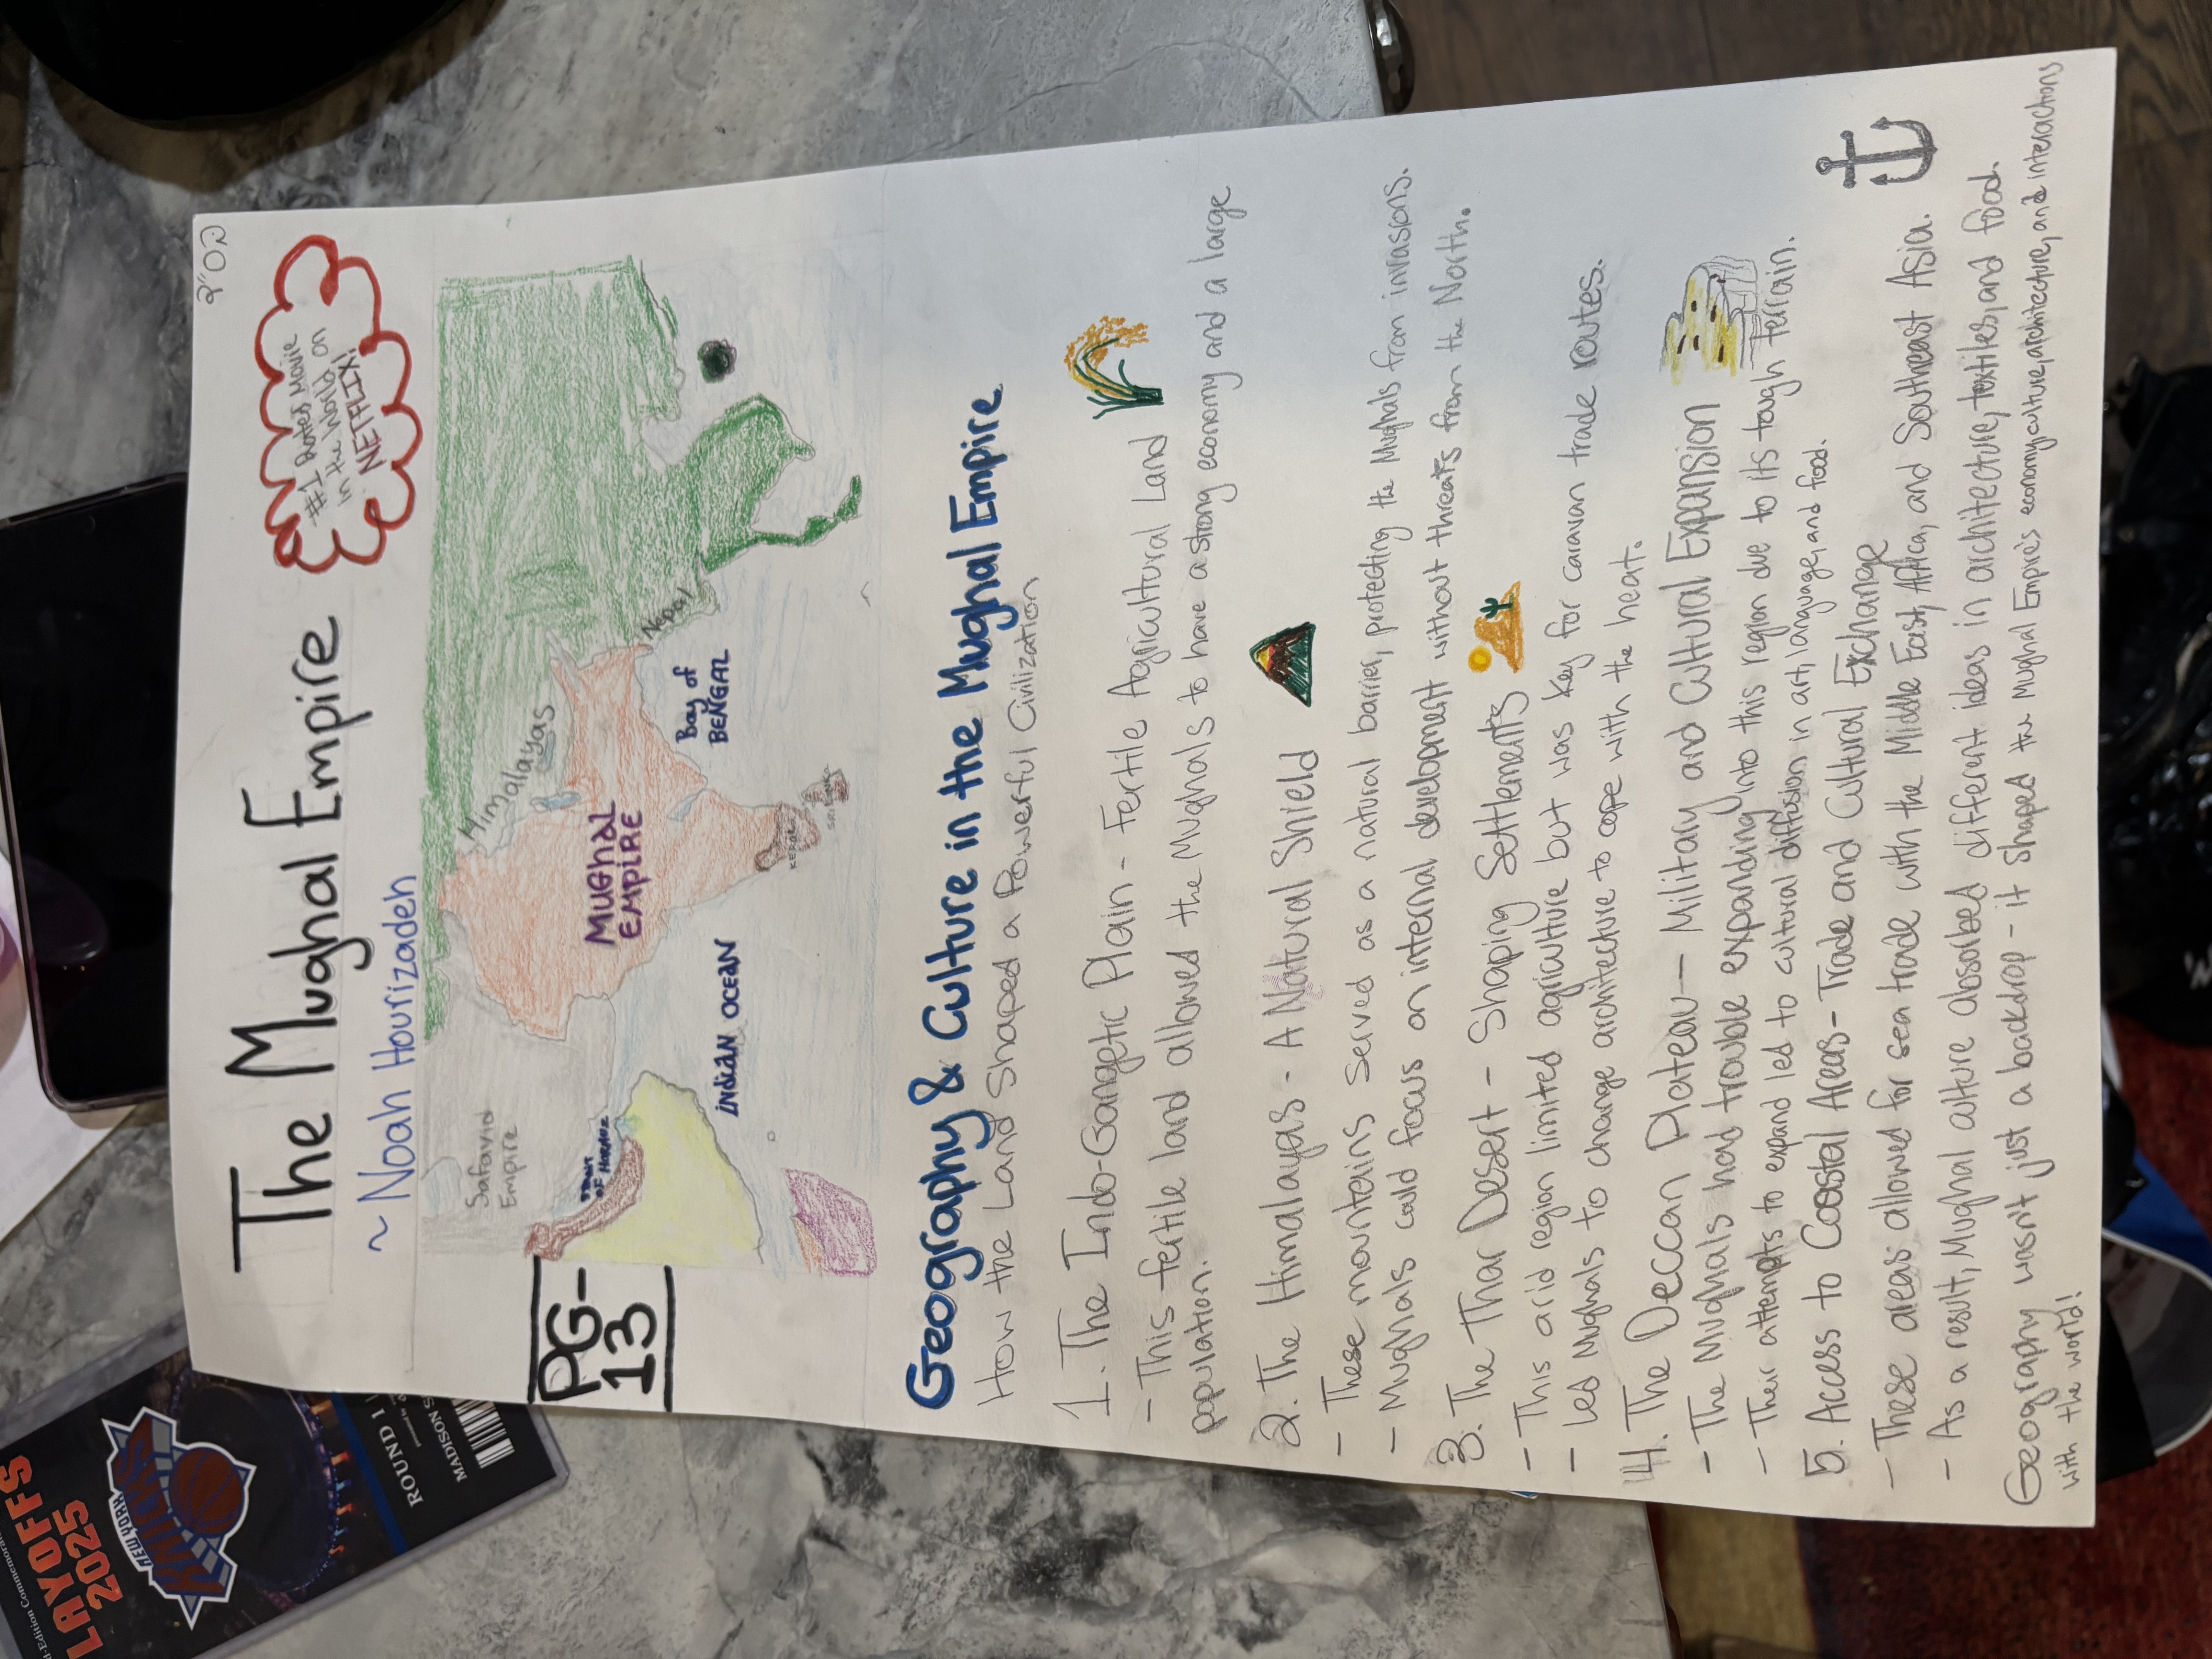 בס"ד
The Mughal Empire
~ Noah Hourizadeh
#1 Rated Movie
in the World on
NETFLIX!
PG-
13
Safavid
Empire
Himalayas
Nepal
STRAIT
OF HORMUZ
MUGHAL
EMPIRE
Bay of
BENGAL
INDIAN OCEAN
KERALA
SRI LANKA
Geography & Culture in the Mughal Empire
How the Land Shaped a Powerful Civilization
1. The Indo-Gangetic Plain - Fertile Agricultural Land
- This fertile land allowed the Mughals to have a strong economy and a large
population.
2. The Himalayas - A Natural Shield
- These mountains served as a natural barrier, protecting the Mughals from invasions.
- Mughals could focus on internal development without threats from the North.
3. The Thar Desert - Shaping Settlements
- This arid region limited agriculture but was key for caravan trade routes.
- Led Mughals to change architecture to cope with the heat.
4. The Deccan Plateau - Military and Cultural Expansion
- The Mughals had trouble expanding into this region due to its tough terrain.
- Their attempts to expand led to cultural diffusion in art, language, and food.
5. Access to Coastal Areas - Trade and Cultural Exchange
- These areas allowed for sea trade with the Middle East, Africa, and Southeast Asia.
- As a result, Mughal culture absorbed different ideas in architecture, textiles, and food.
Geography wasn't just a backdrop - it shaped the Mughal Empire's economy, culture, architecture, and interactions
with the world!
LAYOFFS
2025
NEW YORK
KNICKS
ROUND 1
MADISON S